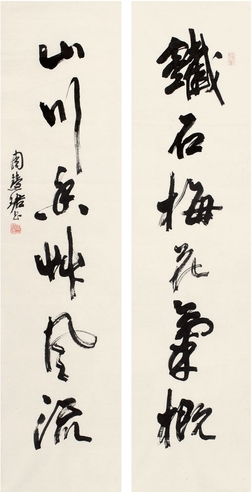 鐵石梅花氣概
山川香艸風流
周慧珺書